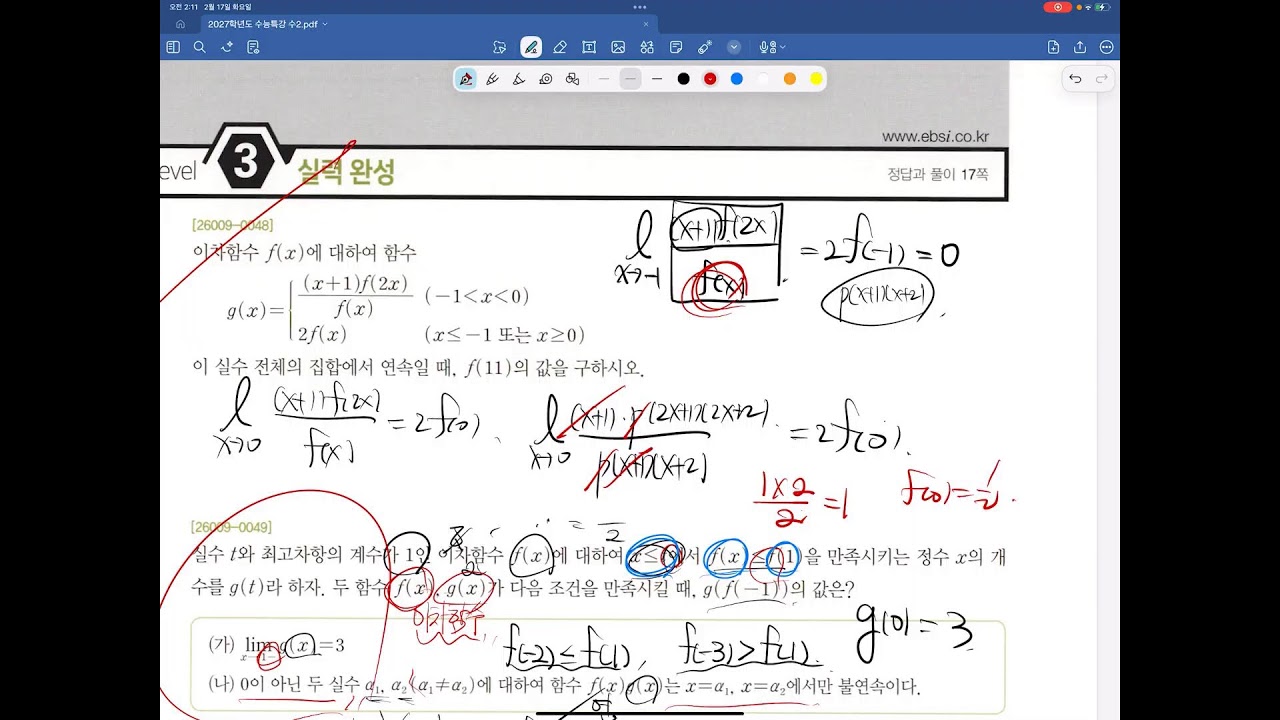 오전 2:11 2월 17일 화요일
2027학년도 수능특강 수2.pdf
www.ebsi.co.kr
evel 3 실력 완성
정답과 풀이 17쪽
[26009-0048]
이차함수 f(x)에 대하여 함수
g(x)={ (x+1)f(2x) / f(x) (-1<x<0)
2f(x) (x≤-1 또는 x≥0)
이 실수 전체의 집합에서 연속일 때, f(11)의 값을 구하시오.
l x→-1 (x+1)f(2x) / f(x) = 2f(-1) = 0
p(x+1)(x+2)
l x→0 (x+1)f(2x) / f(x) = 2f(0).
l x→0 (x+1)·p(2x+1)(2x+2) / p(x+1)(x+2) = 2f(0).
1×2 / 2 = 1
f(0) = 1/2.
[26009-0049]
실수 t와 최고차항의 계수가 1인 이차함수 f(x)에 대하여 x≤t에서 f(x)≤f(1)을 만족시키는 정수 x의 개
수를 g(t)라 하자. 두 함수 f(x), g(x)가 다음 조건을 만족시킬 때, g(f(-1))의 값은?
(가) lim x→1- g(x)=3
f(-2)≤f(1), f(-3)>f(1).
g(0)=3
(나) 0이 아닌 두 실수 α₁, α₂(α₁≠α₂)에 대하여 함수 f(x)g(x)는 x=α₁, x=α₂에서만 불연속이다.